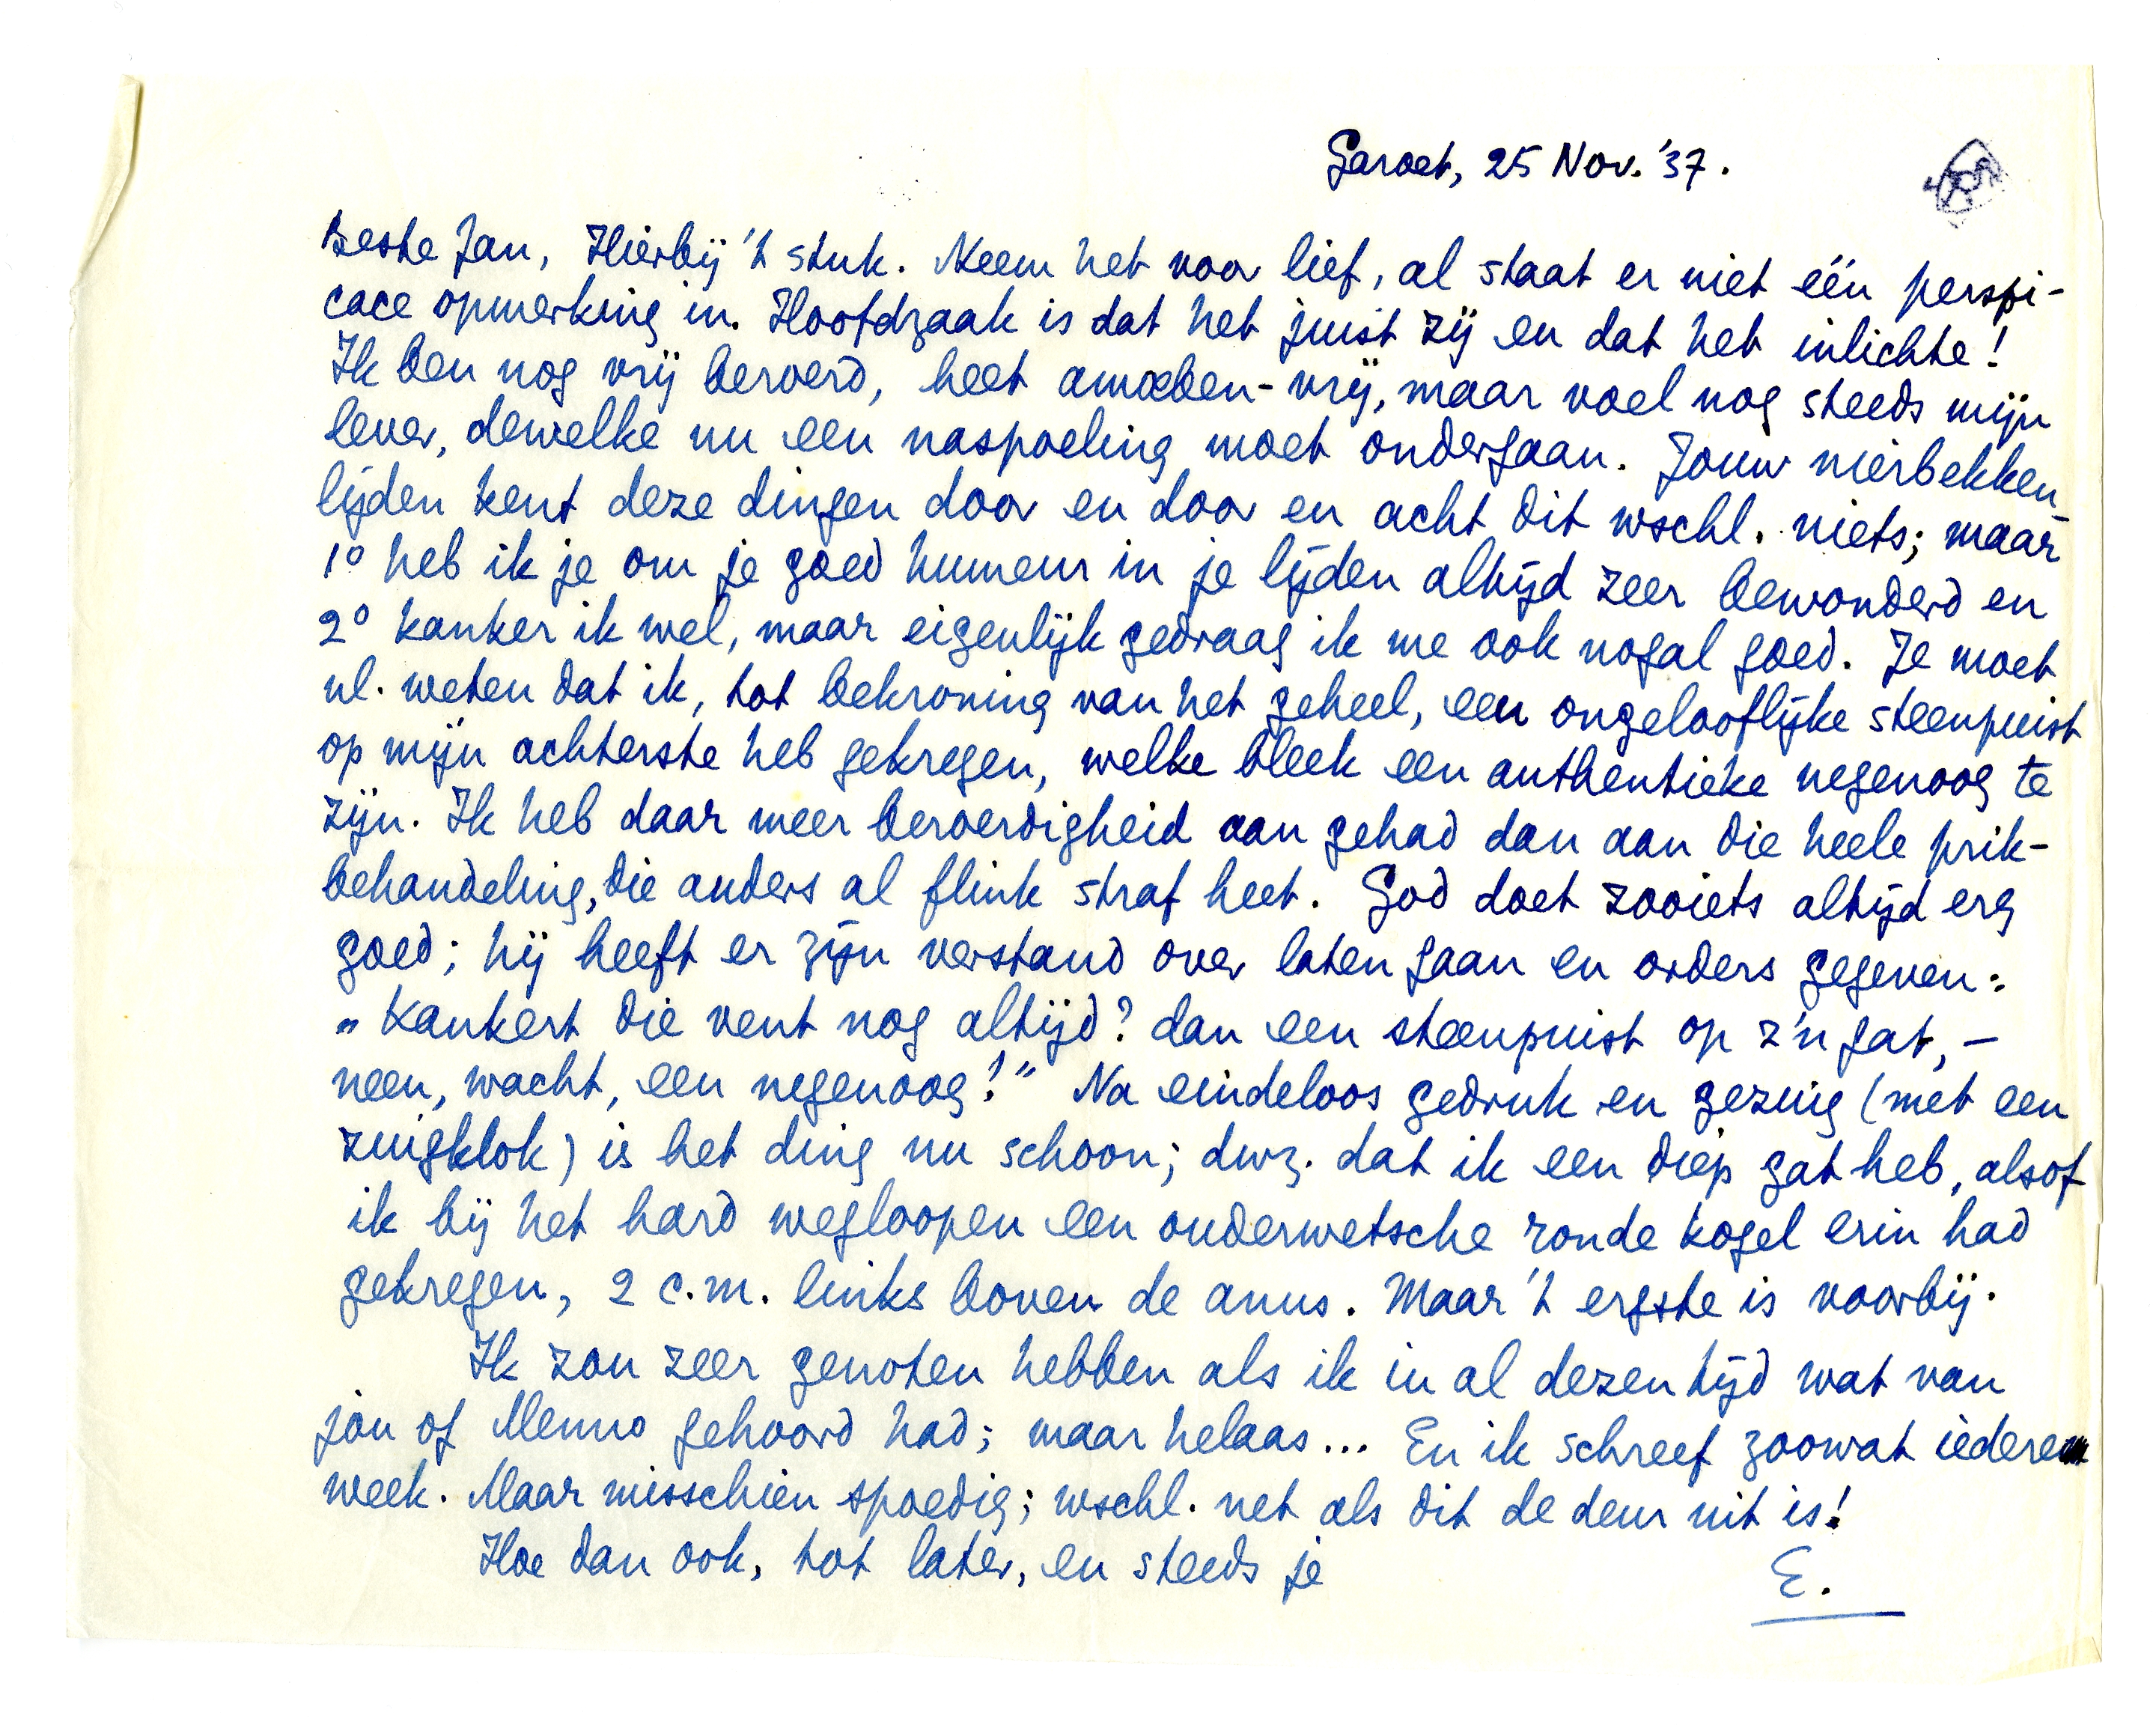 Garoet, 25 Nov. '37.
Beste Jan, Hierbij 't stuk. Neem het voor lief, al staat er niet één perspi-
cace opmerking in. Hoofdzaak is dat het juist zij en dat het inlichte!
Ik ben nog vrij beroerd, heet amoeben-vrij, maar voel nog steeds mijn
lever, dewelke nu een naspoeling moet ondergaan. Jouw nierbekken-
lijden kent deze dingen door en door en acht dit wschl. niets; maar
1° heb ik je om je goed humeur in je lijden altijd zeer bewonderd en
2° kanker ik wel, maar eigenlijk gedraag ik me ook nogal goed. Je moet
nl. weten dat ik, tot bekroning van het geheel, een ongelooflijke steenpuist
op mijn achterste heb gekregen, welke bleek een authentieke negenoog te
zijn. Ik heb daar meer beroerdigheid aan gehad dan aan die heele prik-
behandeling, die anders al flink straf heet. God doet zooiets altijd erg
goed; hij heeft er zijn verstand over laten gaan en orders gegeven:
„Kankert die vent nog altijd? dan een steenpuist op z'n gat, –
neen, wacht, een negenoog!" Na eindeloos gedruk en gezuig (met een
zuigklok) is het ding nu schoon; dwz. dat ik een diep gat heb, alsof
ik bij het hard wegloopen een ouderwetsche ronde kogel erin had
gekregen, 2 c.m. links boven de anus. Maar 't ergste is voorbij.
Ik zou zeer genoten hebben als ik in al dezen tijd wat van
jou of Menno gehoord had; maar helaas... En ik schreef zoowat iedere
week. Maar misschien spoedig; wschl. net als dit de deur uit is!
Hoe dan ook, tot later, en steeds je
E.